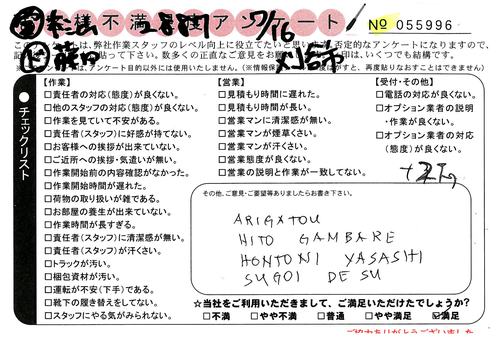 お客様不満足度アンケート
7/16
No 055996
このアンケートは、弊社作業スタッフのレベル向上に役立てたいと思います。否定的なアンケートになりますので、
貼って下さい。多数のご正直なご意見をお願い
印は、いくつでも結構です。
アンケート目的以外には使用いたしません。(※情報保護
がすと、再度貼りなおすことはできません)
●チェックリスト
【作業】
□責任者の対応(態度)が良くない。
□他のスタッフの対応(態度)が良くない。
□作業を見ていて不安がある。
□責任者(スタッフ)に好感が持てない。
□お客様への挨拶が出来ていない。
□ご近所への挨拶・気遣いが無い。
□作業開始前の内容確認がなかった。
□作業開始時間が遅れた。
□荷物の取り扱いが雑である。
□お部屋の養生が出来ていない。
□作業時間が長すぎる。
□責任者(スタッフ)に清潔感が無い。
□責任者(スタッフ)が汗くさい。
□トラックが汚い。
□梱包資材が汚い。
□運転が不安(下手)である。
□靴下の履き替えをしてない。
□スタッフにやる気がみられない。
【営業】
□見積もり時間に遅れた。
□見積もり時間が長い。
□営業マンに清潔感が無い。
□営業マンが煙草くさい。
□営業マンが汗くさい。
□営業態度が良くない。
□営業の説明と作業が一致してない。
【受付・その他】
□電話の対応が良くない。
□オプション業者の説明
・作業が良くない。
□オプション業者の対応
(態度)が良くない。
その他、ご意見・ご要望等ありましたらお書き下さい。
ARIGATOU
HITO GAMBARE
HONTONI YASASHI
SUGOI DESU
☆当社をご利用いただきまして、ご満足いただけたでしょうか?
□不満 □やや不満 □普通 □やや満足 ☑満足
ご協力ありがとうございました